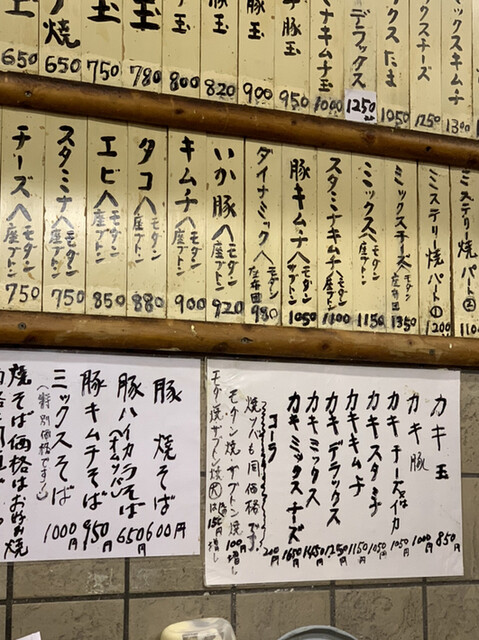 焼 650
玉 750
玉 780
玉 800
豚玉 820
豚玉 900
豚玉 950
ミナキムチ玉 1000
デラックス 1250
ックスたま 1050
ックスチーズ 1250
ックスキムチ 1300
チーズ〈モダン座ブトン 750
スタミナ〈モダン座ブトン 750
エビ〈モダン座ブトン 850
タコ〈モダン座ブトン 880
キムチ〈モダン座ブトン 900
いか豚〈モダン座ブトン 920
ダイナミック〈モダン座布団 980
豚キムチ〈モダン座ブトン 1050
スタミナキムチ〈モダン座ブトン 1100
ミックス〈モダン座ブトン 1150
ミックスチーズ〈モダン座布団 1350
ミステリー焼パート① 1200
ミステリー焼パート② 1100
豚焼そば 600円
豚ハイカラそば 650円
豚キムチそば 950円
ミックスそば 1000円
(特別価格です)
焼そば価格はお好み焼
カキ玉 850円
カキ豚 1000円
カキチーズ又はイカ 1050円
カキスタミナ 1050円
カキキムチ 1150円
カキデラックス 1250円
カキミックス 1450円
カキミックスチーズ 1650円
コーラ 200円
焼ソバも同価格です。
モダン焼ザブトン焼 100円増し
モダン焼ザブトン焼 大は 150円増し